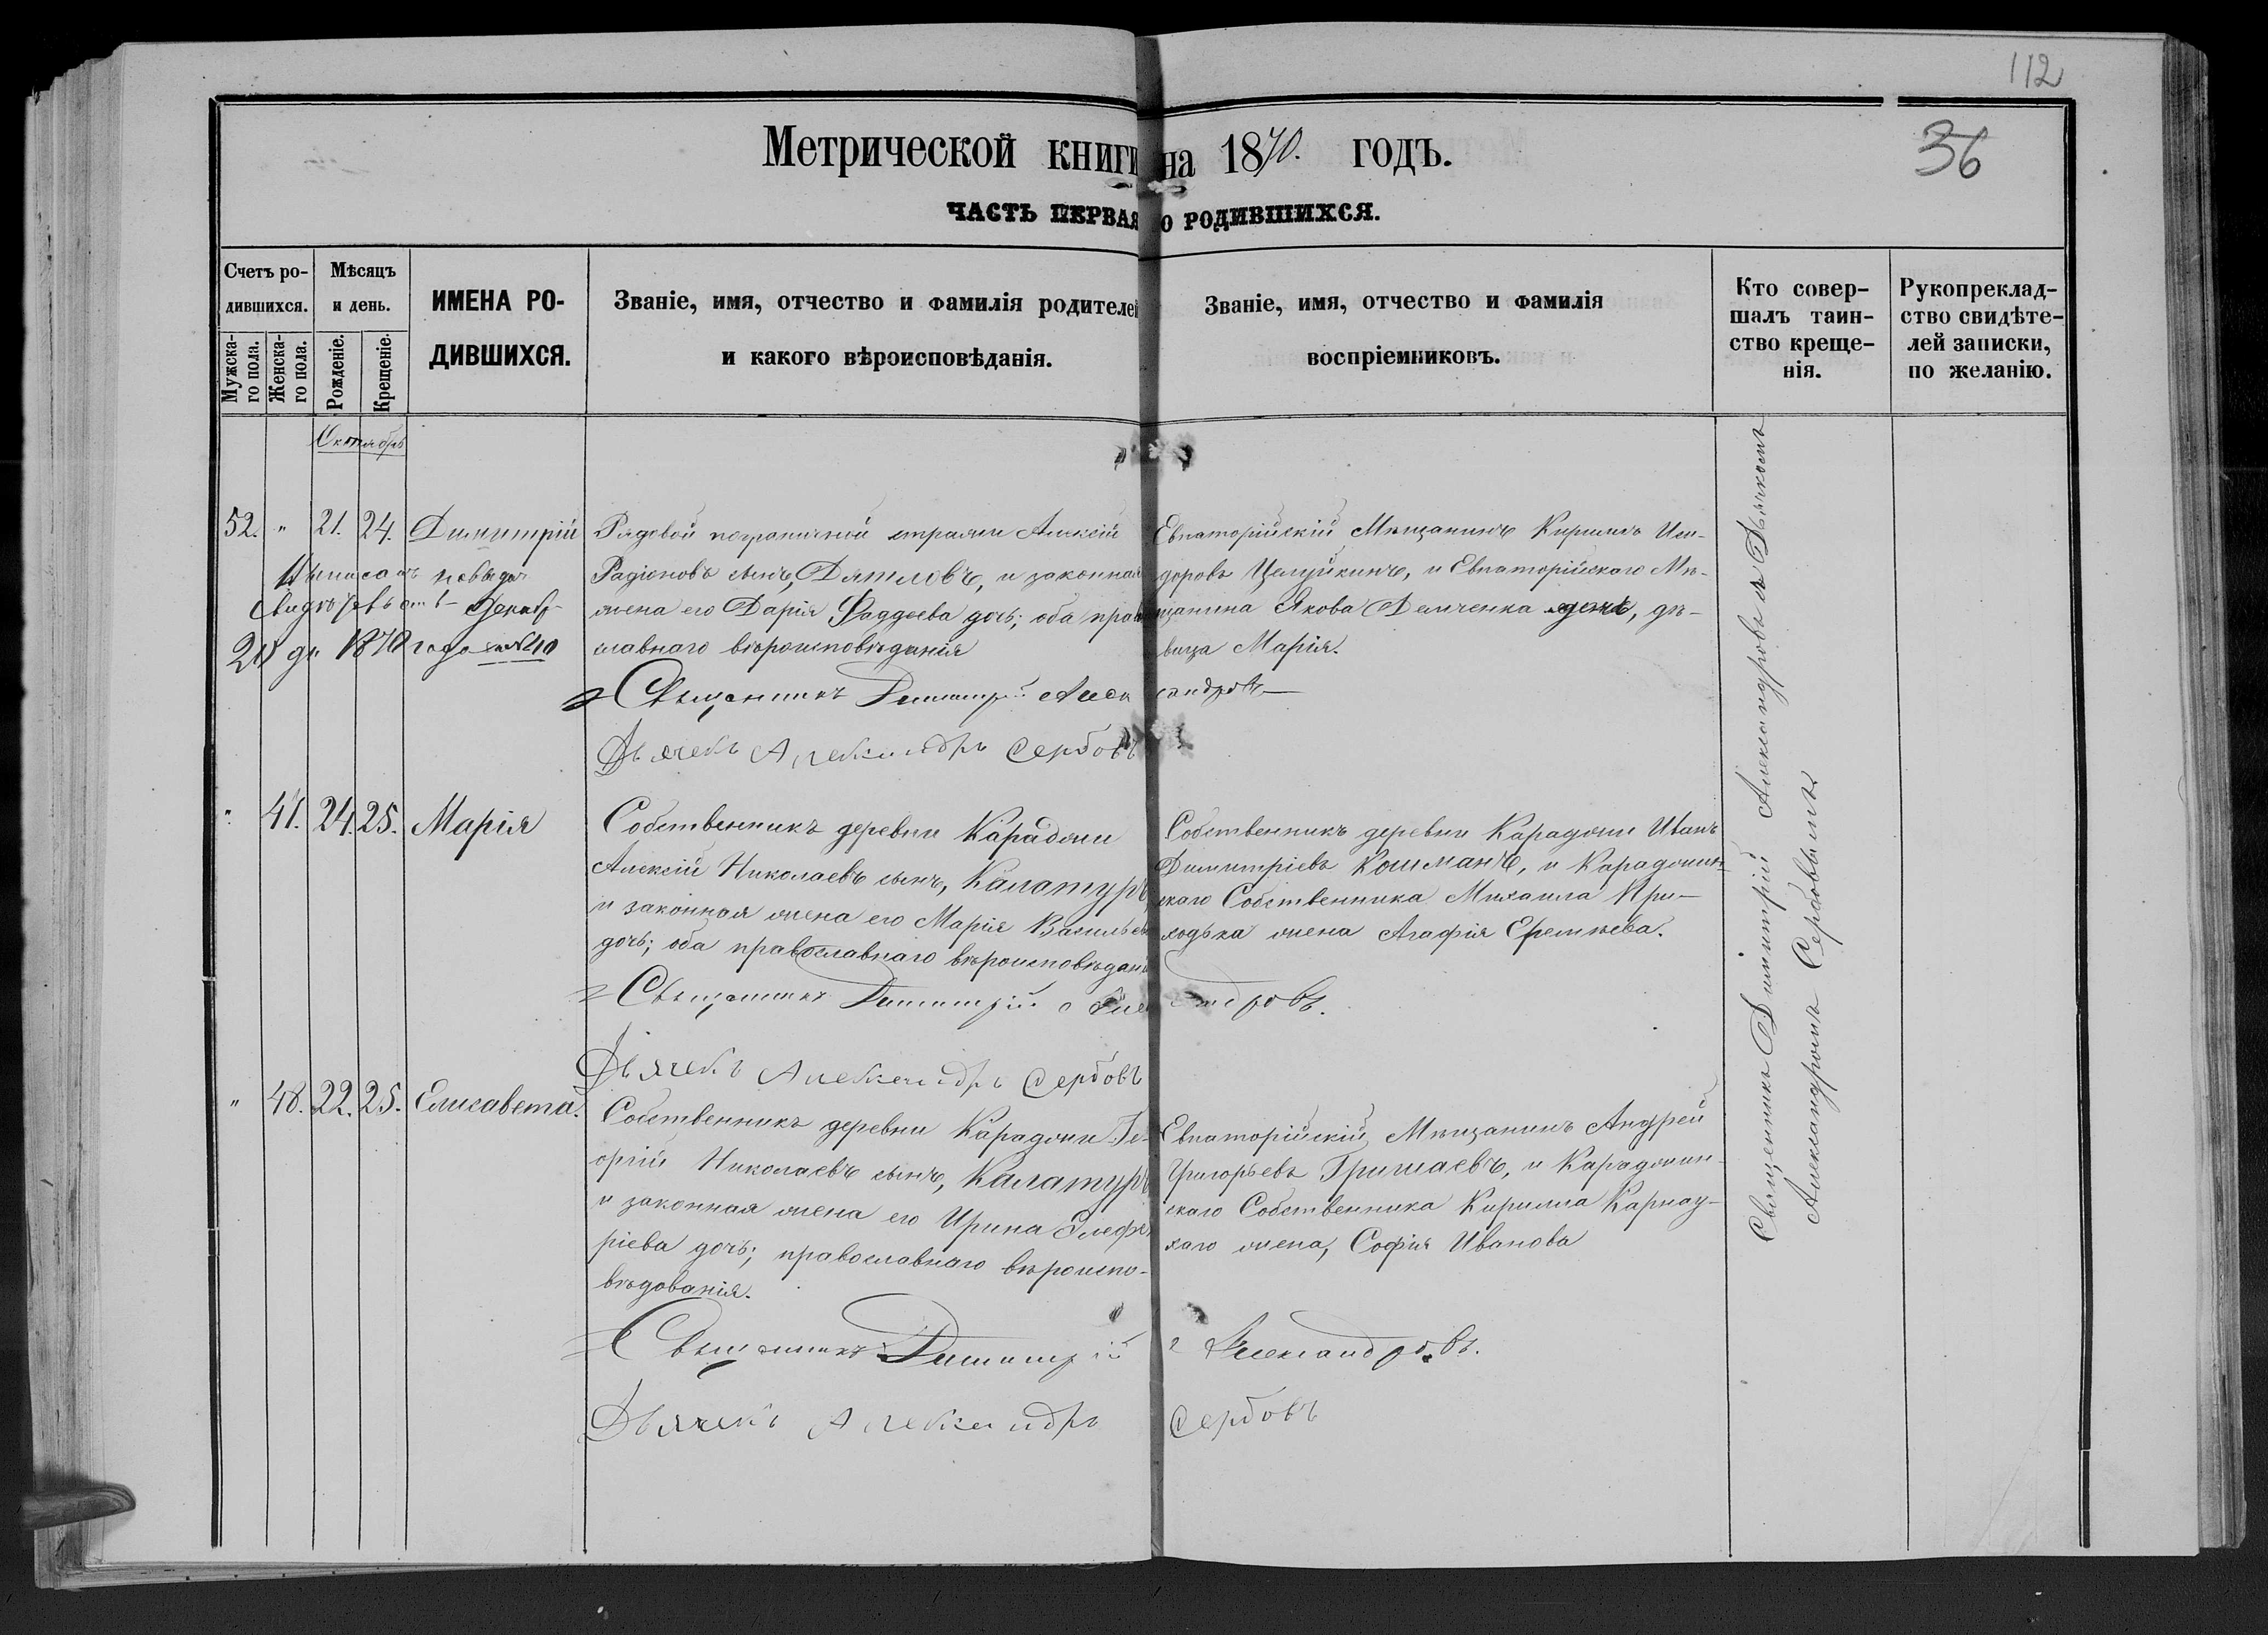 112
36
Метрической книги на 1870. годъ.
ЧАСТЬ ПЕРВАЯ О РОДИВШИХСЯ.
Счетъ ро-
дившихся.
Мужска-
го пола.
Женска-
го пола.
Мѣсяцъ
и день.
Рожденіе.
Крещеніе.
ИМЕНА РО-
ДИВШИХСЯ.
Званіе, имя, отчество и фамилія родителей
и какого вѣроисповѣданія.
Званіе, имя, отчество и фамилія
воспріемниковъ.
Кто совер-
шалъ таин-
ство креще-
нія.
Рукопреклад-
ство свидѣте-
лей записки,
по желанію.
Октябрь
52. " 21. 24. Димитрій
Рядовой пограничной стражи Алексій
Радіоновъ сынъ, Дятловъ, и законная
жена его Дарія Фаддеева дочь; оба право
славнаго вѣроисповѣданія
Священникъ Димитрій Александровъ
Дьячекъ Александръ Сербовъ
Евпаторійскій Мѣщанинъ Кириллъ Иси-
доровъ Целуйкинъ, и Евпаторійскаго Мѣ-
щанина Якова Демченка дочь, дѣ-
вица Марія.
1870 года №210
" 47. 24. 25. Марія
Собственникъ деревни Караджи
Алексій Николаевъ сынъ, Калатуръ
и законная жена его Марія Васильева
дочь; оба православнаго вѣроисповѣдані
Священникъ Димитрій Александровъ.
Дьячекъ Александръ Сербовъ
Собственникъ деревни Караджи Иванъ
Димитріевъ Кошманъ, и Караджин-
скаго Собственника Михаила При-
ходька жена Агафія Еремѣева.
" 48. 22. 25. Елисавета.
Собственникъ деревни Караджи Ге-
оргій Николаевъ сынъ, Калатуръ
и законная жена его Ирина Елефе
ріева дочь; православнаго вѣроиспо-
вѣдованія.
Священникъ Димитрій Александровъ.
Дьячекъ Александръ Сербовъ
Евпаторійскій Мѣщанинъ Андрей
Григорьевъ Гришаевъ, и Караджин-
скаго Собственника Кирилла Карнау-
хаго жена, Софія Иванова
Священникъ Димитрій Александровъ съ Дьячкомъ
Александромъ Сербовымъ